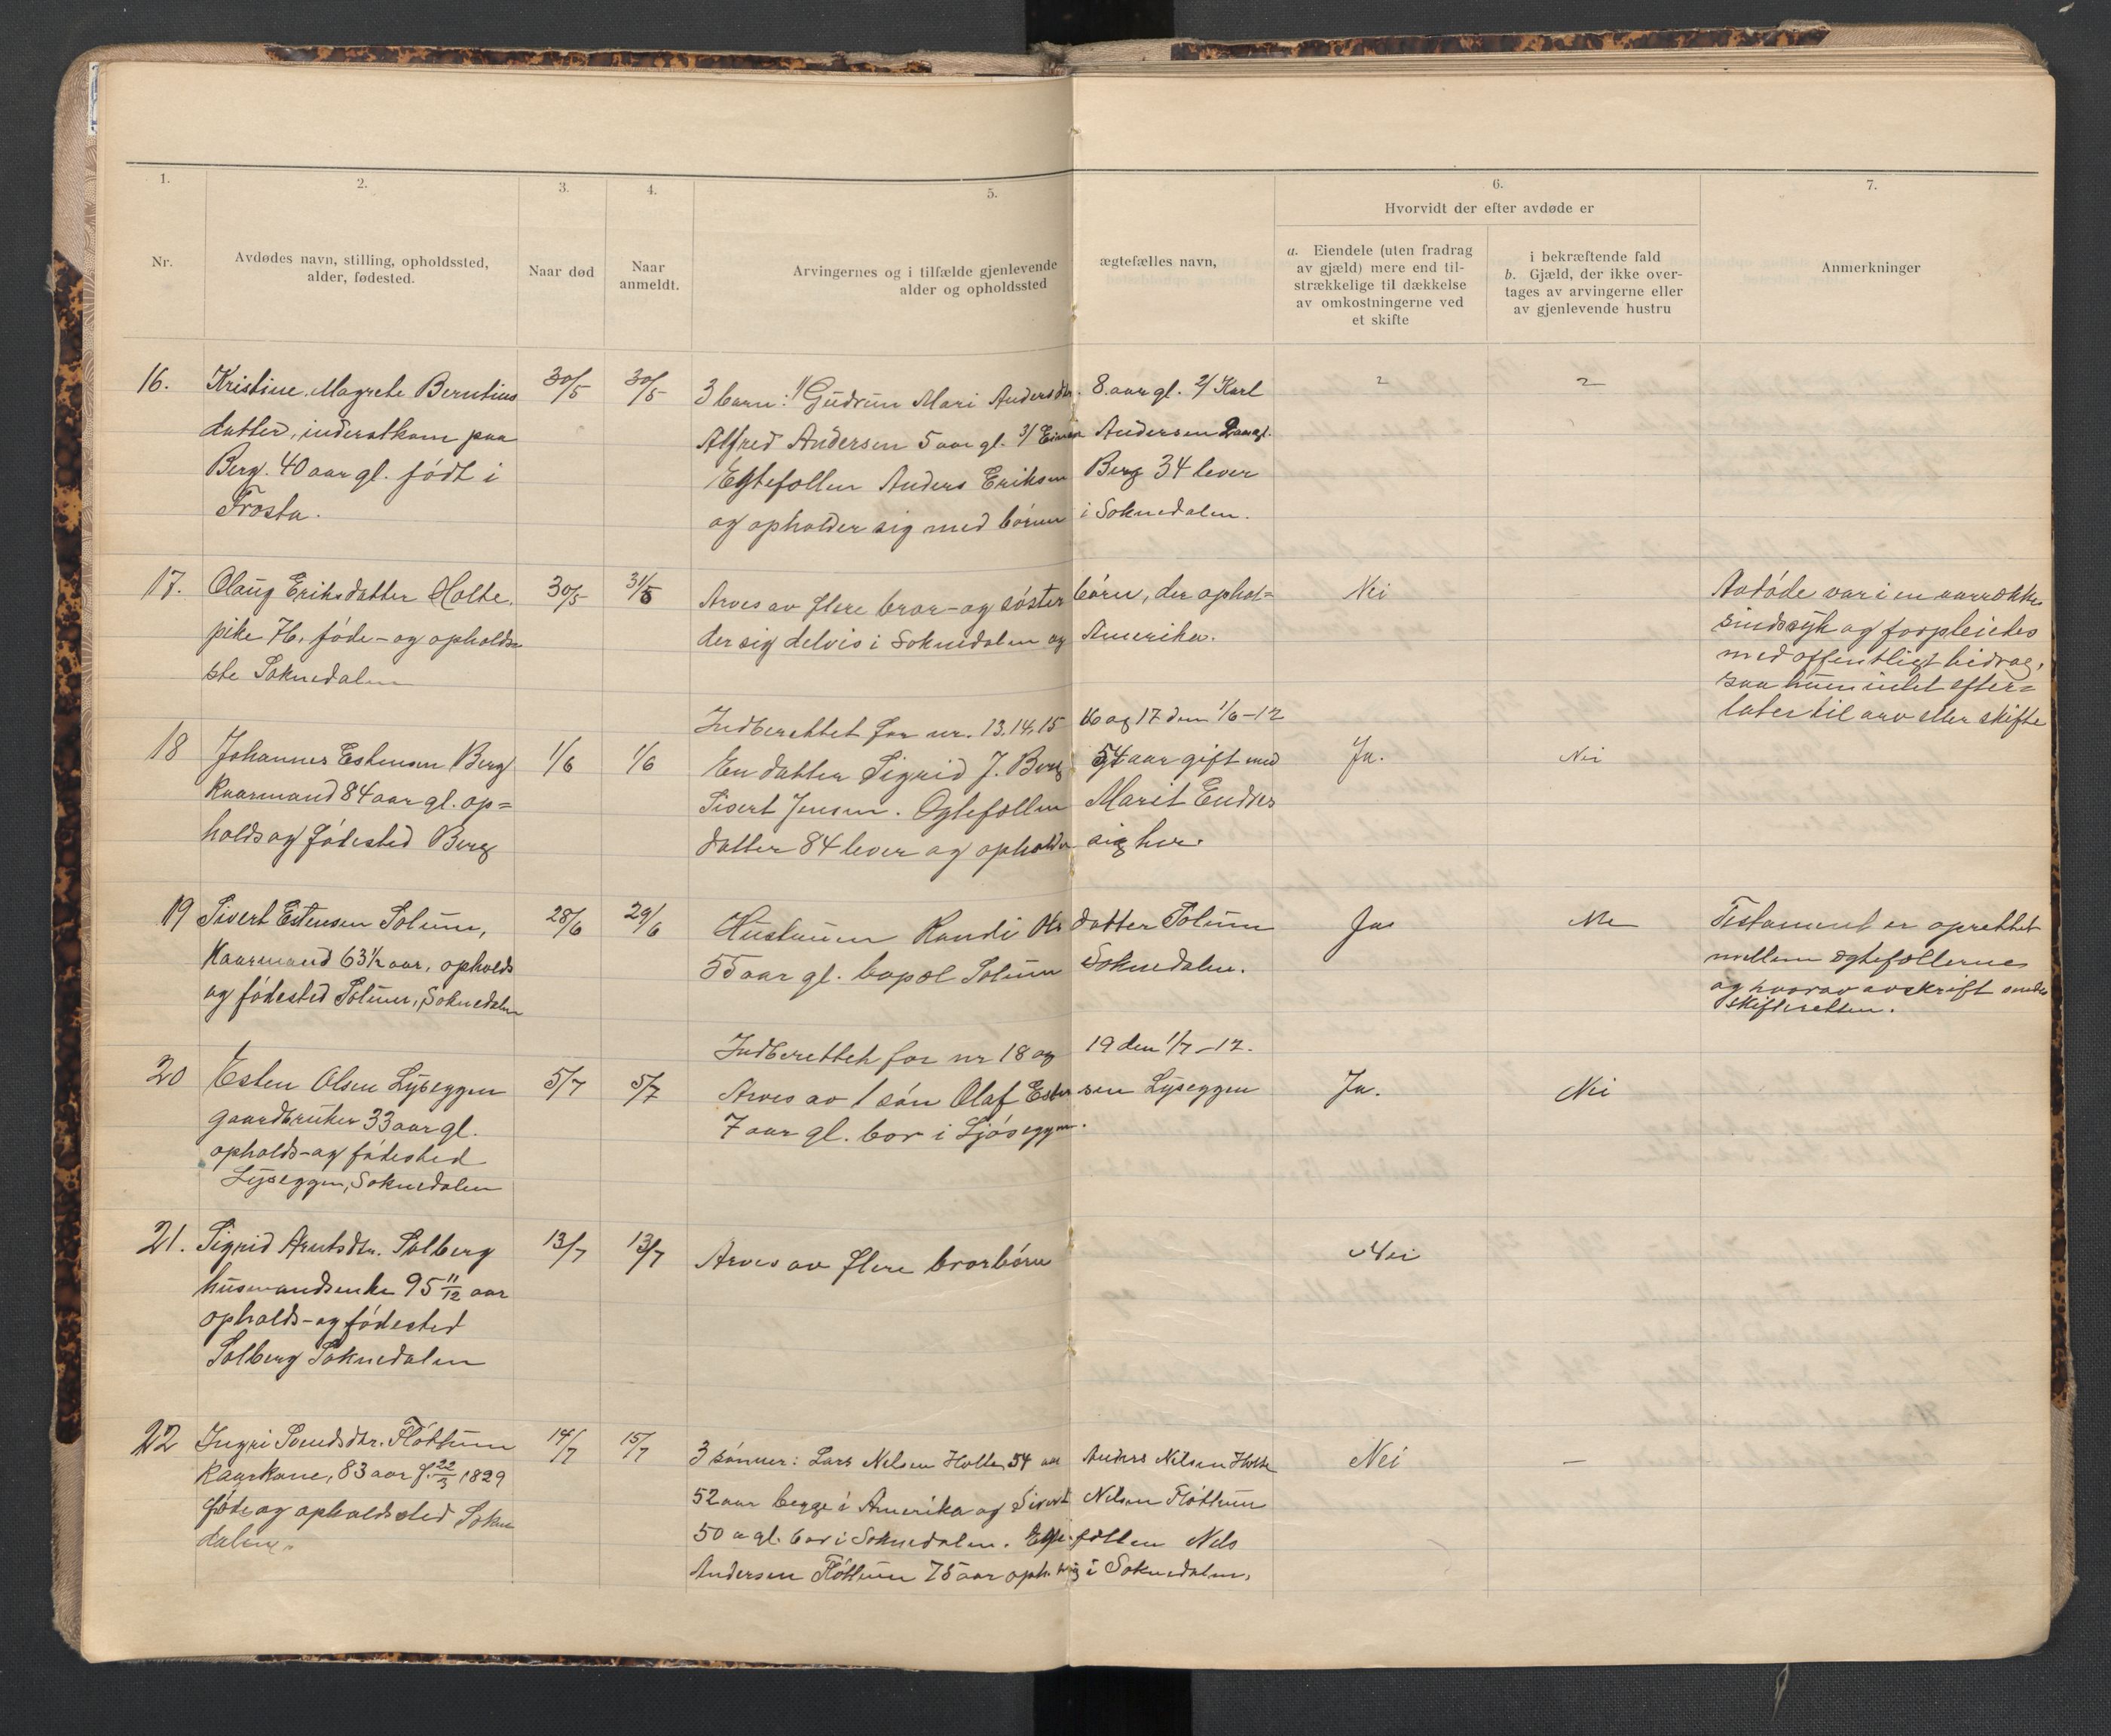 1.
2.
3.
4.
5.
6.
7.
Hvorvidt der efter avdøde er
Nr.
Avdødes navn, stilling, opholdssted,
alder, fødested.
Naar død
Naar
anmeldt.
Arvingernes og i tilfælde gjenlevende ægtefælles navn,
alder og opholdssted
a. Eiendele (uten fradrag
av gjæld) mere end til-
strækkelige til dækkelse
av omkostningerne ved
et skifte
i bekræftende fald
b. Gjæld, der ikke over-
tages av arvingerne eller
av gjenlevende hustru
Anmerkninger
16.
Kristine Magrete Berntins
datter, inderstkone paa
Berg. 40 aar gl. født i
Frosta.
30/5
30/5
3 barn: 1/ Gudrun Mari Andersdtr. 8 aar gl. 2/ Karl
Alfred Andersen 5 aar gl. 3/ Einar Andersen 2 aar gl.
Egtefællen Anders Eriksen Berg 34 lever
og opholder sig med børnene i Soknedalen.
17.
Olaug Eriksdatter Holte,
pike 74, føde- og opholds-
ste Soknedalen
30/5
31/5
Arves av flere bror- og søsterbørn, der ophol=
der sig delvis i Soknedalen og Amerika.
Nei
Avdøde var i en aarrække
sindssyk og forpleiedes
med offentligt bidrag,
saa hun intet efter=
later til arv eller skifte
Indberettet for nr. 13, 14, 15 16 og 17 den 1/6-12
18
Johannes Estensen Berg
Kaarmand 84 aar gl. op=
holds og fødested Berg
1/6
1/6
En datter Sigrid J. Berg 54 aar gift med
Sivert Jensen. Egtefællen Marit Endres
datter 84 lever og opholder sig her.
Ja.
Nei
19
Sivert Estensen Solum,
Kaarmand 63½ aar, opholds
og fødested Solum, Soknedalen
28/6
29/6
Hustruen Randi datter Solum
55 aar gl. bopæl Solum Soknedalen.
Ja
Testament er oprettet
mellem ægtefællerne
og hvorav avskrift sendes
skifteretten.
Indberettet for nr 18 og 19 den 1/7-12.
20
Esten Olsen Lyseggen
gaardbruker 33 aar gl.
opholds- og fødested
Lyseggen, Soknedalen
5/7
5/7
Arves av 1 søn Olaf Estensen Lyseggen
7 aar gl. bor i Ljøseggen.
Ja.
Nei
21.
Sigrid Arntsdtr. Solberg
husmandsenke 95 11/12 aar
opholds- og fødested
Solberg Soknedalen
13/7
13/7
Arves av flere brorbørn
Nei
22
Ingri Svendsdtr. Fløttum
Kaarkone, 83 aar f. 22/3 1829
føde og opholdssted Sokne
dalen.
14/7
15/7
3 sønner: Lars Nilsen Holte 54 aar Anders Nilsen Holte
52 aar begge i Amerika og Sivert Nilsen Fløttum
50 a gl. bor i Soknedalen. Egtefællen Nils
Andersen Fløttum 75 aar oph. sig i Soknedalen.
Nei
—